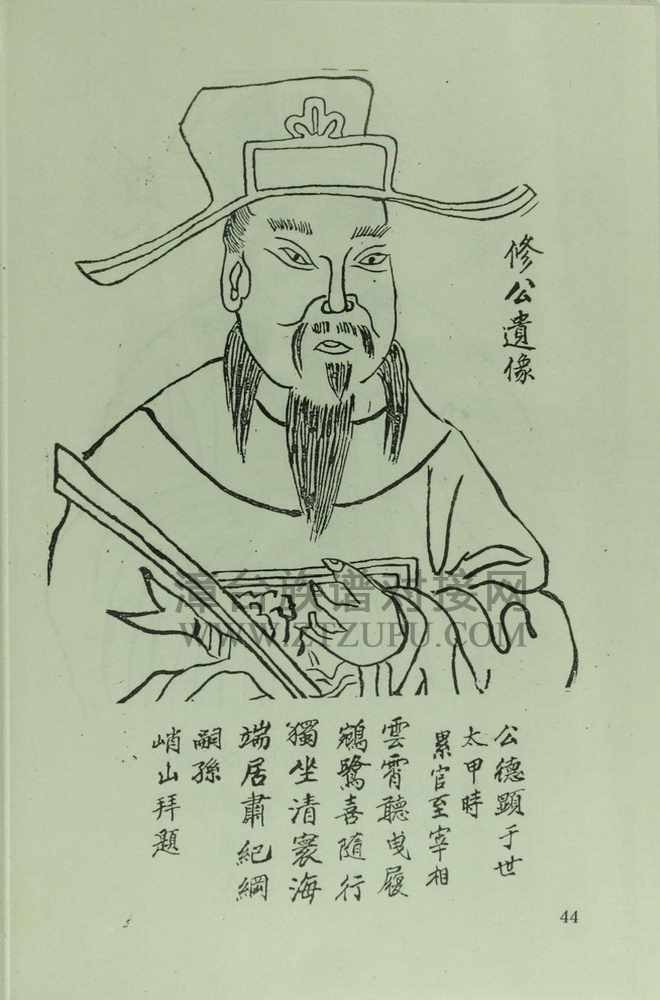 修公遺像
公德顯于世
太甲時
累官至宰相
雲霄聽曳履
鵷鷺喜隨行
獨坐清寰海
端居肅紀綱
嗣孫
峭山拜題
漳台族谱对接网
WWW.ZTZUPU.COM
44